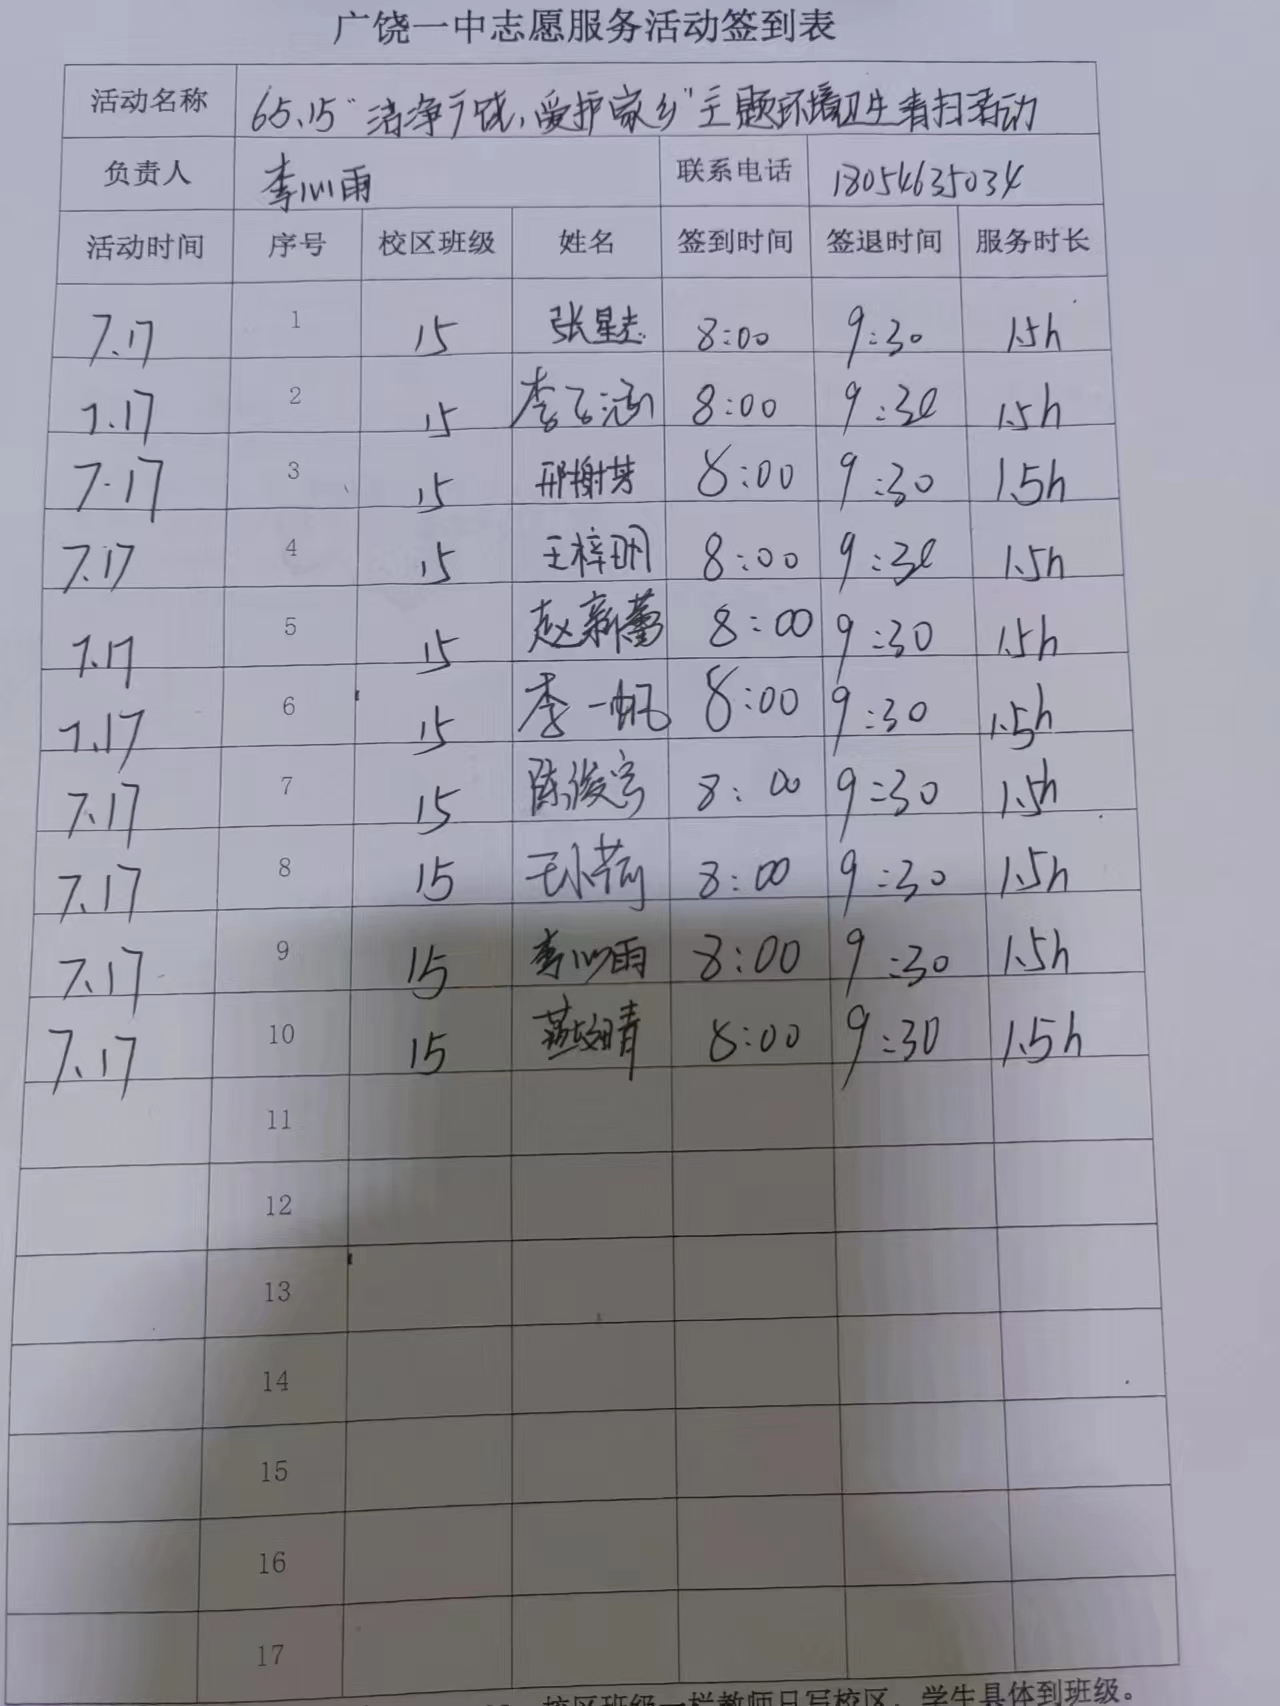 广饶一中志愿服务活动签到表
活动名称 65.15"洁净广饶,爱护家乡"主题环境卫生清扫活动
负责人 李心雨 联系电话 18054635034
活动时间 序号 校区班级 姓名 签到时间 签退时间 服务时长
7.17 1 15 张星志 8:00 9:30 1.5h
7.17 2 15 李子涵 8:00 9:30 1.5h
7.17 3 15 邢榭芳 8:00 9:30 1.5h
7.17 4 15 王梓玥 8:00 9:30 1.5h
7.17 5 15 赵新蕾 8:00 9:30 1.5h
7.17 6 15 李一帆 8:00 9:30 1.5h
7.17 7 15 陈俊宇 8:00 9:30 1.5h
7.17 8 15 王小荷 8:00 9:30 1.5h
7.17 9 15 李心雨 8:00 9:30 1.5h
7.17 10 15 8:00 9:30 1.5h
11
12
13
14
15
16
17
校区班级一栏教师只写校区,学生具体到班级。